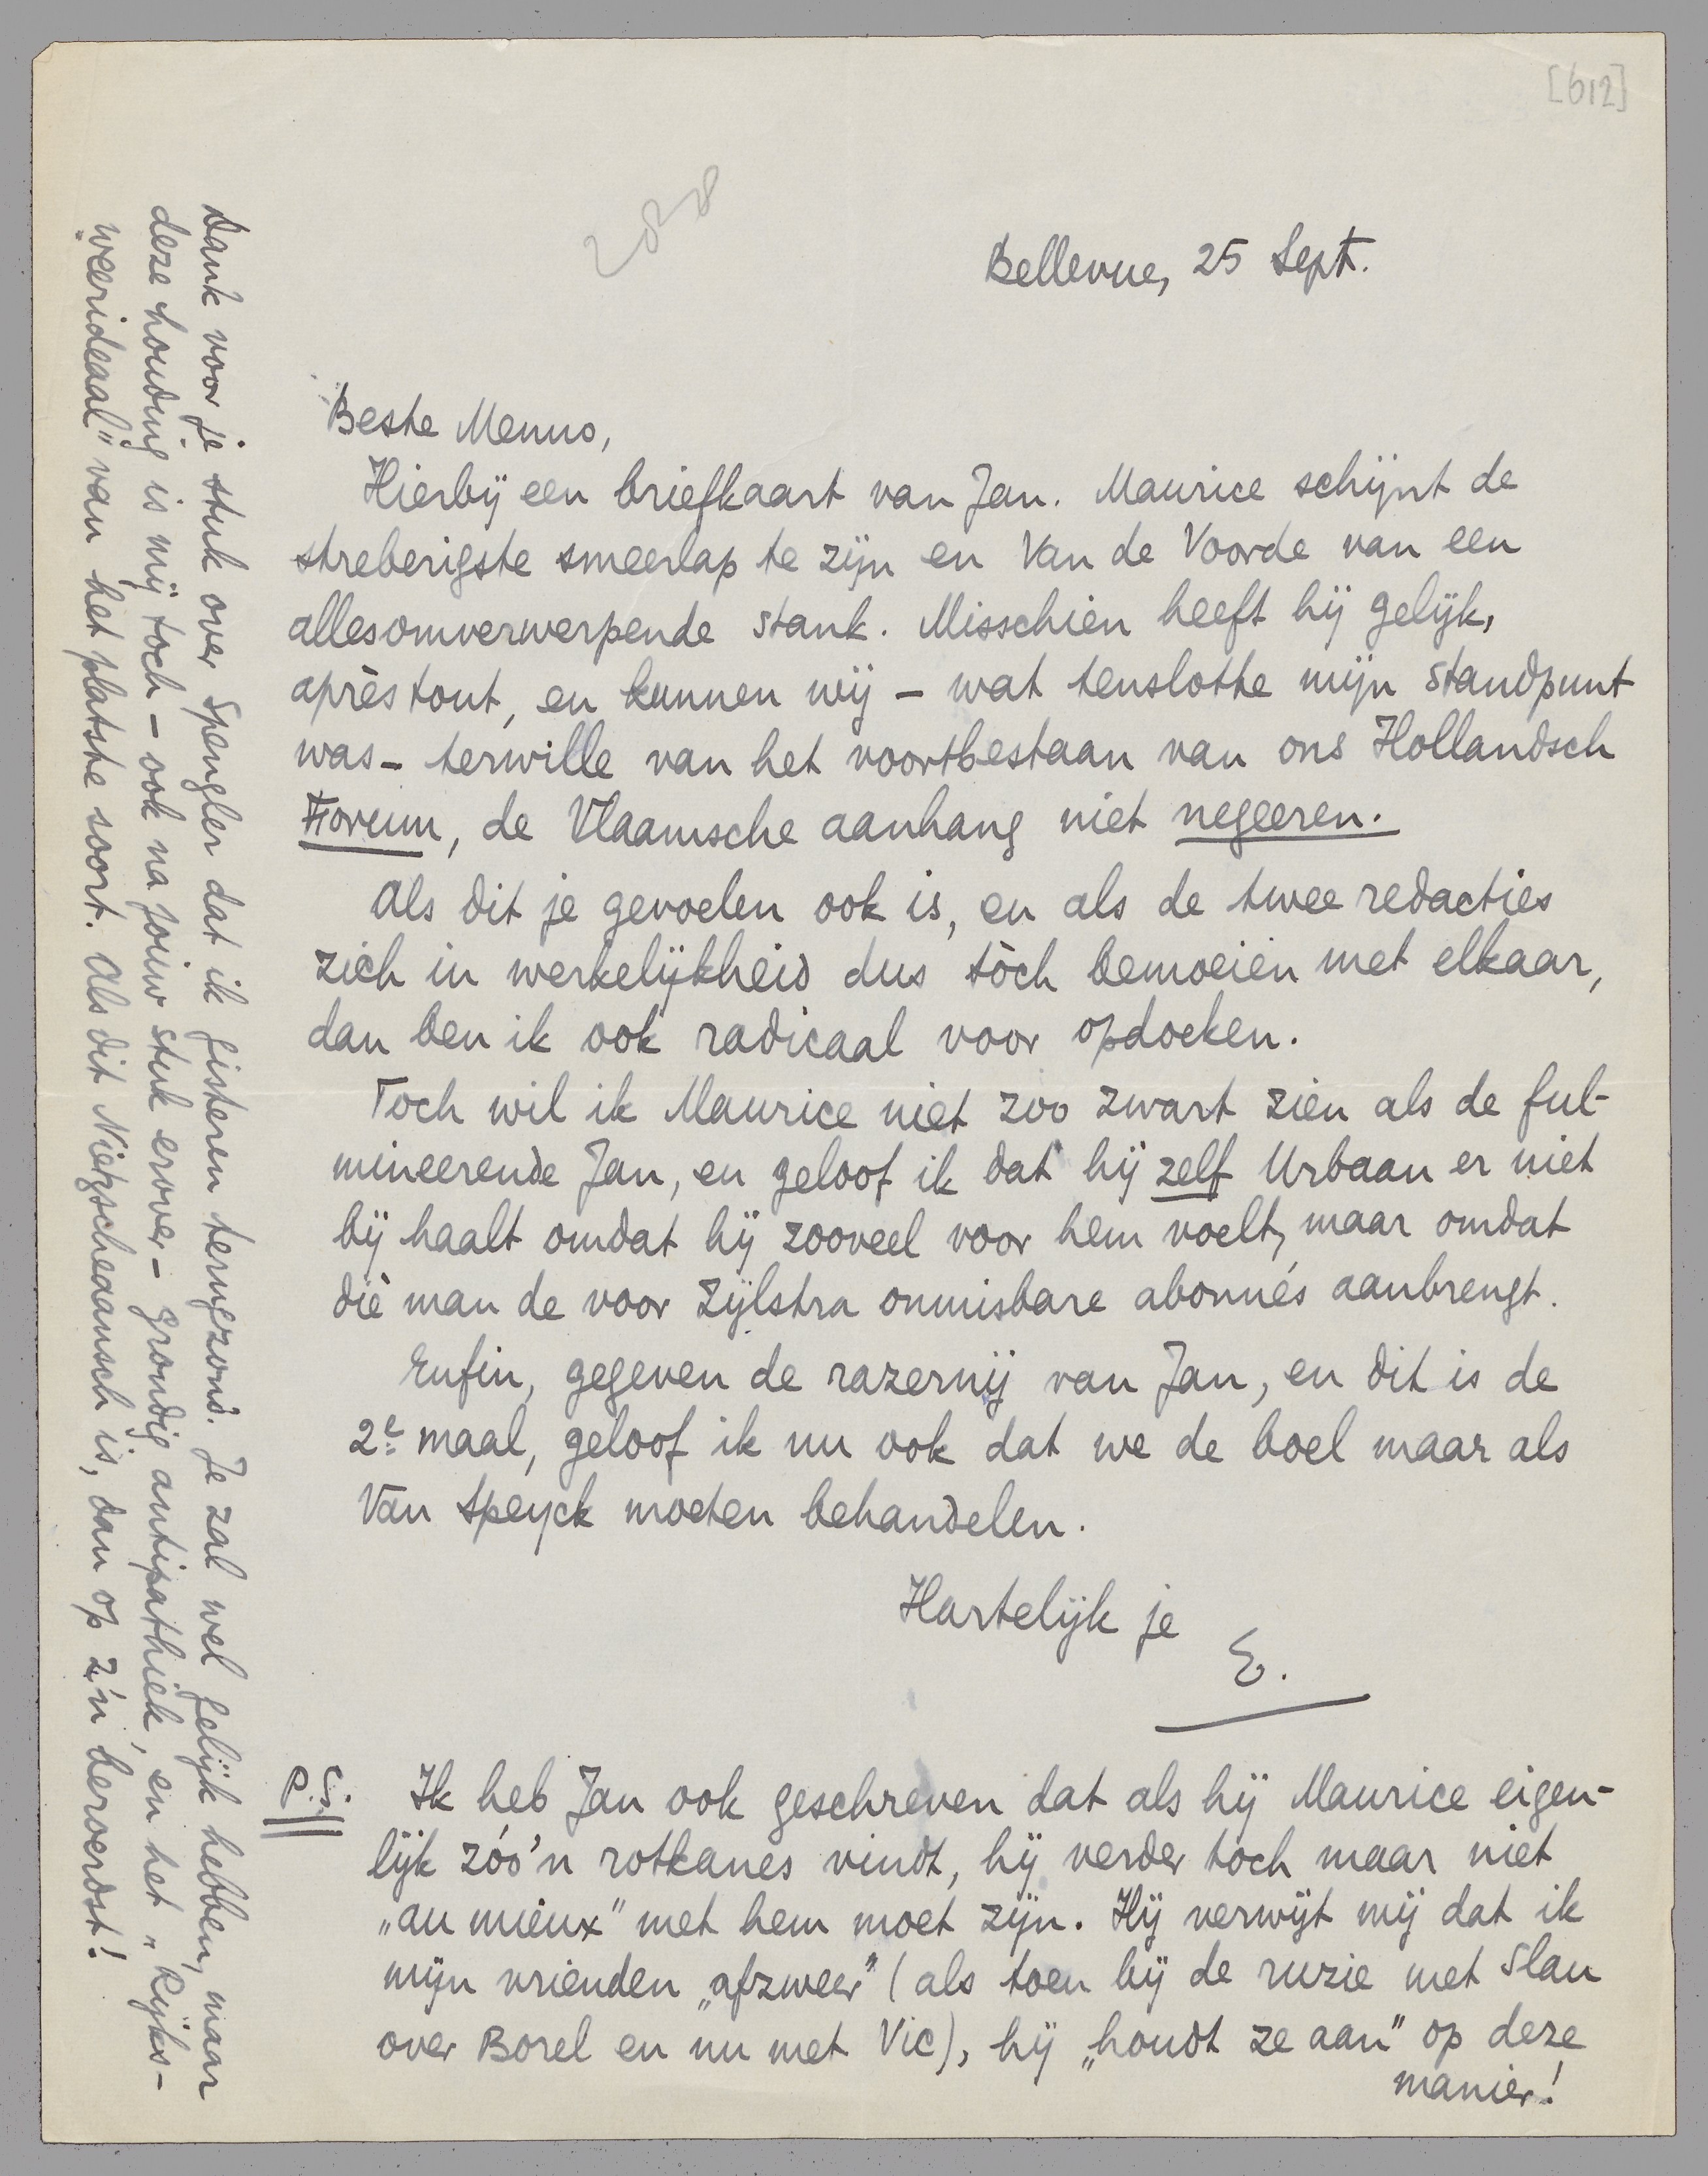 [612]
2028
Bellevue, 25 Sept.
Beste Menno,
Hierbij een briefkaart van Jan. Maurice schijnt de
streberigste smeerlap te zijn en Van de Voorde van een
allesomverwerpende stank. Misschien heeft hij gelijk,
après tout, en kunnen wij – wat tenslotte mijn standpunt
was – terwille van het voortbestaan van ons Hollandsch
Forum, de Vlaamsche aanhang niet negeeren.
Als dit je gevoelen ook is, en als de twee redacties
zich in werkelijkheid dus tòch bemoeien met elkaar,
dan ben ik ook radicaal voor opdoeken.
Toch wil ik Maurice niet zoo zwart zien als de ful-
mineerende Jan, en geloof ik dat hij zelf Urbaan er niet
bij haalt omdat hij zooveel voor hem voelt, maar omdat
die man de voor Zijlstra onmisbare abonnés aanbrengt.
Enfin, gegeven de razernij van Jan, en dit is de
2e maal, geloof ik nu ook dat we de boel maar als
Van Speyck moeten behandelen.
Hartelijk je
E.
P.S. Ik heb Jan ook geschreven dat als hij Maurice eigen-
lijk zóó'n rotkanes vindt, hij verder toch maar niet
„au mieux” met hem moet zijn. Hij verwijt mij dat ik
mijn vrienden „afzweer” (als toen bij de ruzie met Slau
over Borel en nu met Vic), hij „houdt ze aan” op deze
manier!
Dank voor je stuk over Spengler dat ik gisteren terugzond. Je zal wel gelijk hebben, maar
deze houding is mij toch – ook na jouw stuk erover – grondig antipathiek, en het „Rijks-
weerideaal” van het platste soort. Als dit Nietzscheaansch is, dan op z'n beroerdst!